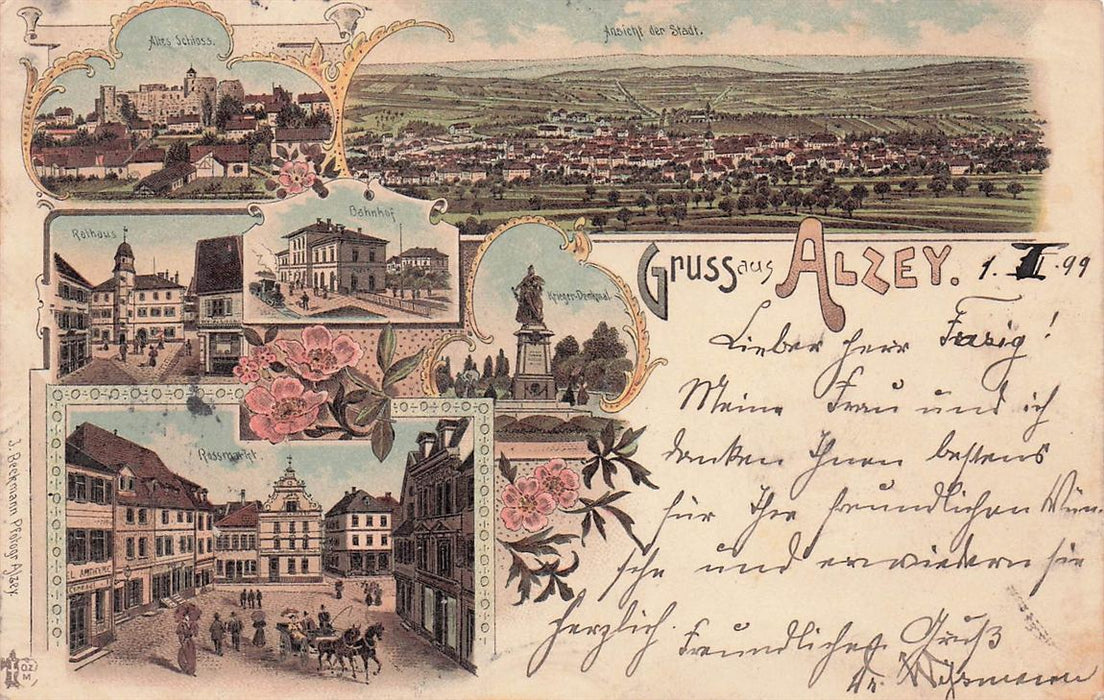 Altes Schloss.
Ansicht der Stadt.
Rathaus
Bahnhof
Krieger-Denkmal
Rossmarkt
Gruss aus ALZEY.
1. I. 99
Lieber Herr
Meine Frau und ich
danken Ihnen bestens
für Ihre freundlichen Wün-
sche und erwiedern sie
herzlich.
Freundlichen Gruß
Dr.
J. Beckmann Photogr. Alzey.